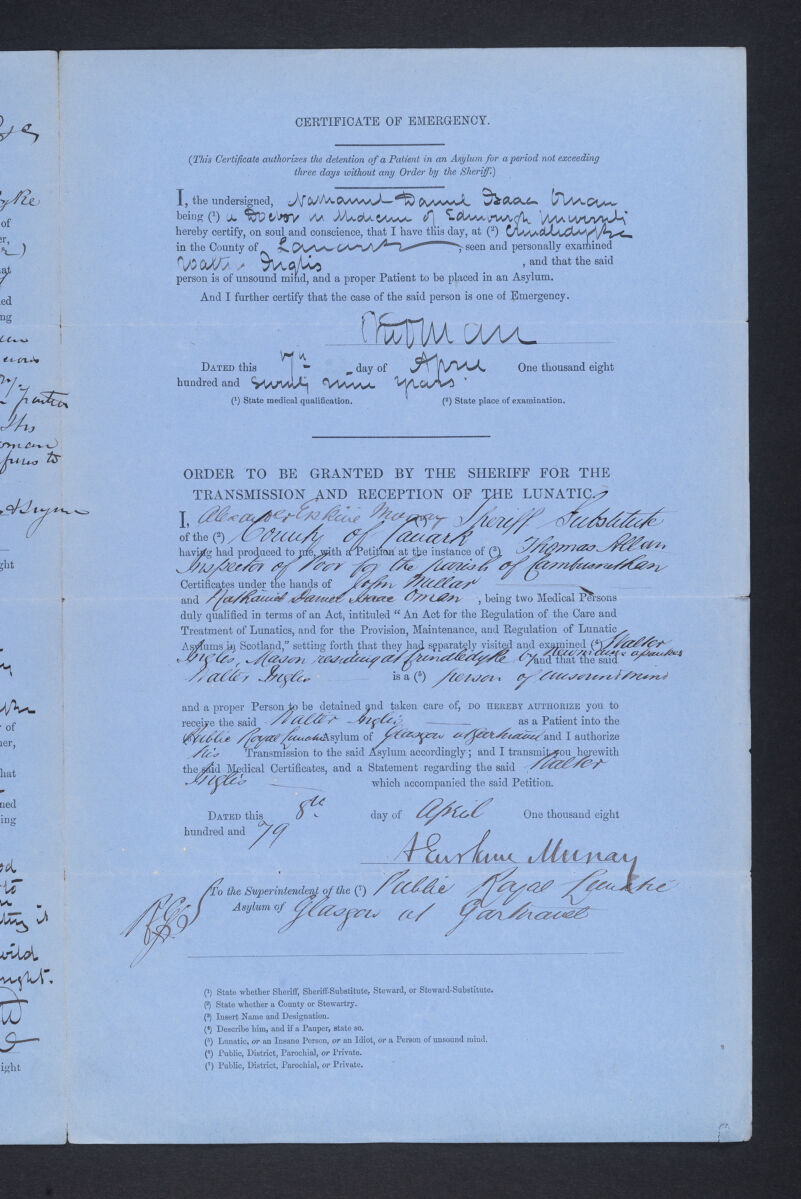 CERTIFICATE OF EMERGENCY.
(This Certificate authorizes the detention of a Patient in an Asylum for a period not exceeding
three days without any Order by the Sheriff.)
I, the undersigned, Nathaniel Daniel Isaac Oman
being (1) a Doctor in Medicine of Edinburgh University
hereby certify, on soul and conscience, that I have this day, at (2)
in the County of Lanark, seen and personally examined
Walter Inglis, and that the said
person is of unsound mind, and a proper Patient to be placed in an Asylum.
And I further certify that the case of the said person is one of Emergency.
Oman
DATED this 7th day of April One thousand eight
hundred and seventy nine years.
(1) State medical qualification. (2) State place of examination.
ORDER TO BE GRANTED BY THE SHERIFF FOR THE
TRANSMISSION AND RECEPTION OF THE LUNATIC.
I, Alexander Erskine Murray Sheriff Substitute
of the (2) County of Lanark
having had produced to me, with a Petition at the instance of (3) Thomas Allan
Inspector of Poor for the parish of Cambusnethan
Certificates under the hands of John Millar
and Nathaniel Daniel Isaac Oman, being two Medical Persons
duly qualified in terms of an Act, intituled " An Act for the Regulation of the Care and
Treatment of Lunatics, and for the Provision, Maintenance, and Regulation of Lunatic
Asylums in Scotland," setting forth that they had separately visited and examined (4) Walter
Inglis, Mason residing at by a pauper and that the said
Walter Inglis is a (5) person of unsound mind
and a proper Person to be detained and taken care of, DO HEREBY AUTHORIZE you to
receive the said Walter Inglis as a Patient into the
Public Royal Lunatic Asylum of Glasgow at Gartnavel and I authorize
his Transmission to the said Asylum accordingly; and I transmit you herewith
the said Medical Certificates, and a Statement regarding the said Walter
Inglis which accompanied the said Petition.
DATED this 8th day of April One thousand eight
hundred and 79
A Erskine Murray
To the Superintendent of the (7) Public Royal Lunatic
Asylum of Glasgow at Gartnavel
(1) State whether Sheriff, Sheriff-Substitute, Steward, or Steward-Substitute.
(2) State whether a County or Stewartry.
(3) Insert Name and Designation.
(4) Describe him, and if a Pauper, state so.
(5) Lunatic, or an Insane Person, or an Idiot, or a Person of unsound mind.
(6) Public, District, Parochial, or Private.
(7) Public, District, Parochial, or Private.